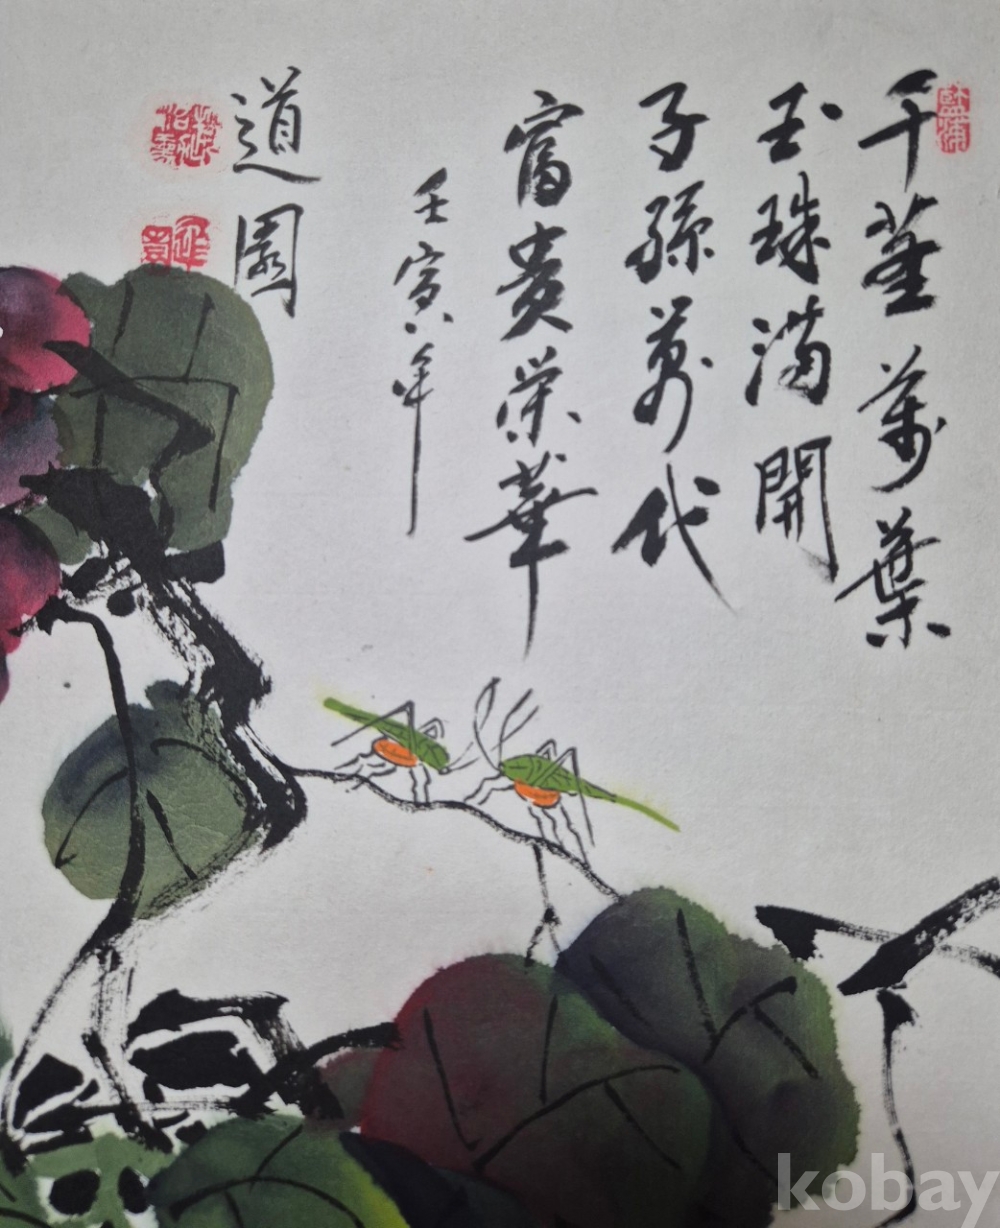 千莖萬葉
玉珠滿開
子孫萬代
富貴荣華
壬寅八年
道園
kobay